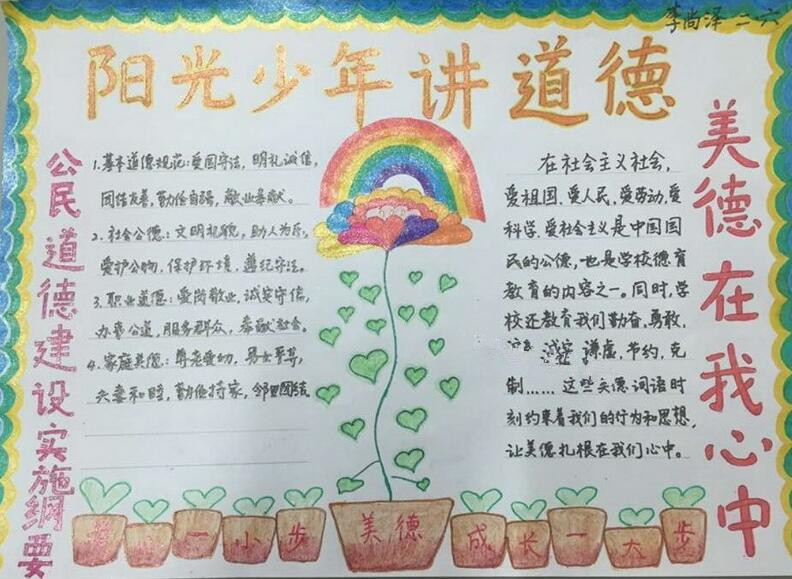 李尚泽 二·六
阳光少年讲道德
公民道德建设实施纲要
1.基本道德规范:爱国守法,明礼诚信,
团结友善,勤俭自强,敬业奉献。
2.社会公德:文明礼貌,助人为乐,
爱护公物,保护环境,遵纪守法。
3.职业道德:爱岗敬业,诚实守信,
办事公道,服务群众,奉献社会。
4.家庭美德:尊老爱幼,男女平等,
夫妻和睦,勤俭持家,邻里团结
在社会主义社会,
爱祖国、爱人民、爱劳动、爱
科学、爱社会主义是中国国
民的公德,也是学校德育
教育的内容之一。同时,学
校还教育我们勤奋、勇敢,
诚实、谦虚、节约、克
制……这些美德词语时
刻约束着我们的行为和思想,
让美德扎根在我们心中。
美德在我心中
一小步
美德
成长一大步